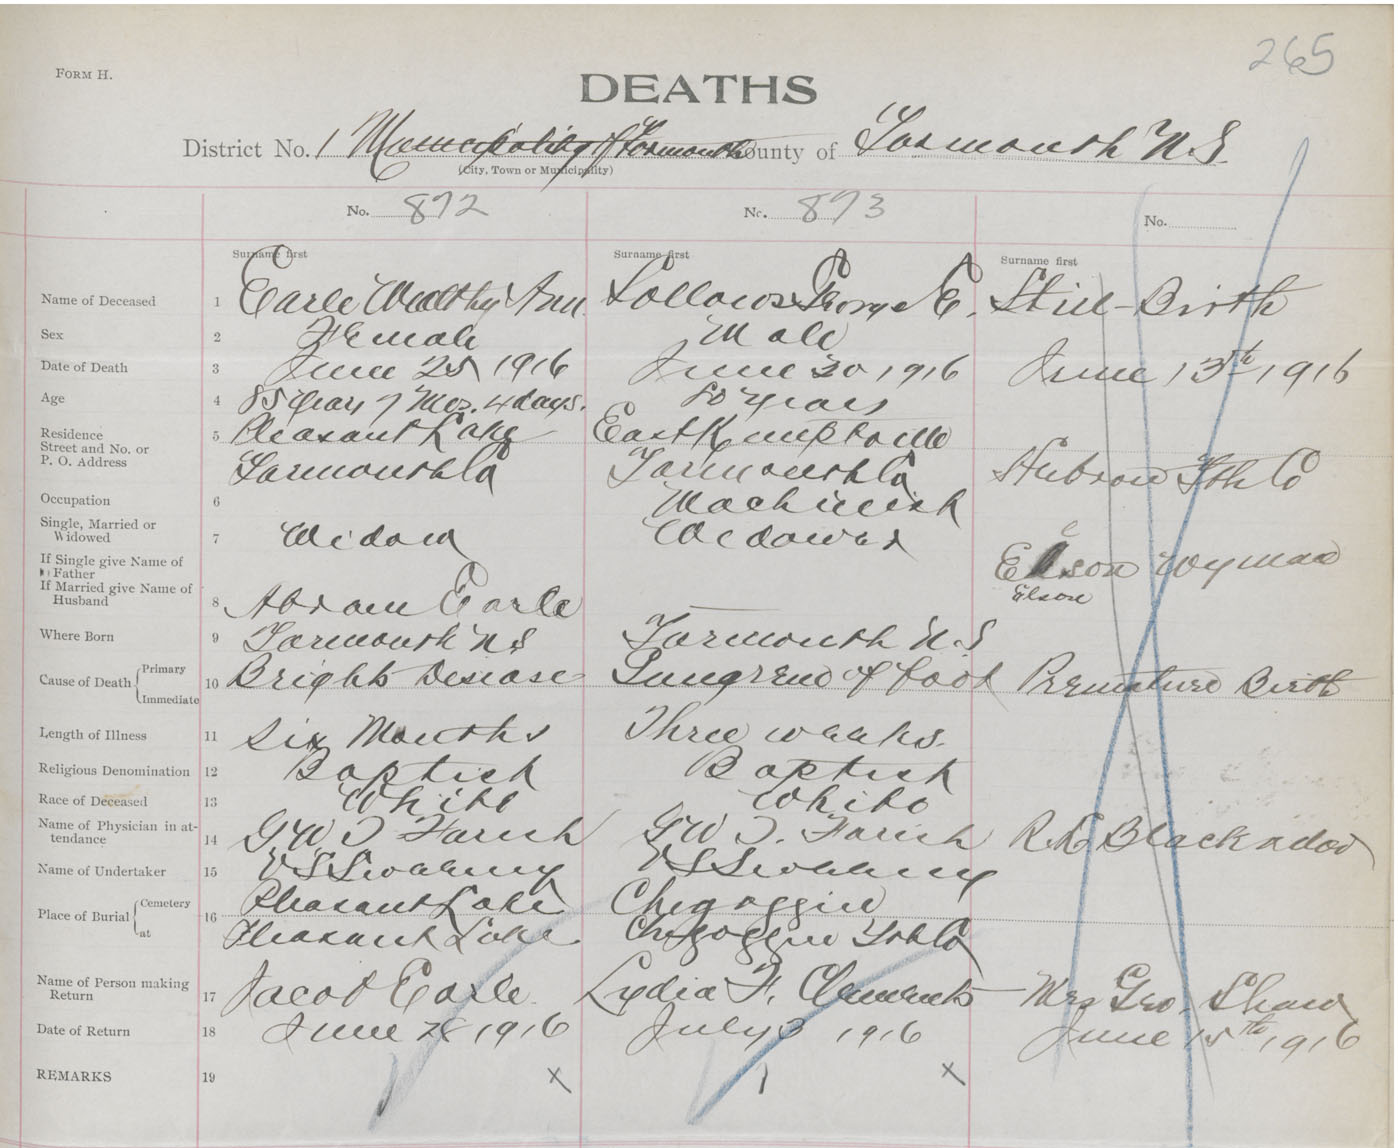 265
FORM H.
DEATHS
District No. 1 Municipality of Yarmouth County of Yarmouth N.S.
(City, Town or Municipality)
No. 872 No. 873 No.
Surname first Surname first Surname first
Name of Deceased 1 Earle Wealthy Ann Lollows George E. Still-Birth
Sex 2 Female Male
Date of Death 3 June 25 1916 June 30 1916 June 13th 1916
Age 4 85 years 7 Mos. 4 days. 80 years
Residence 5 Pleasant Lake East Kemptville
Street and No. or
P. O. Address Yarmouth Co Yarmouth Co Hebron Yth Co
Occupation 6 Machinist
Single, Married or
Widowed 7 Widow Widower
If Single give Name of
Father Elson Wyman
Elson
If Married give Name of
Husband 8 Abram Earle
Where Born 9 Yarmouth N S Yarmouth N S
Cause of Death Primary 10 Brights Disease Gangrene of foot Premature Birth
Immediate
Length of Illness 11 Six Months Three weeks.
Religious Denomination 12 Baptist Baptist
Race of Deceased 13 White White
Name of Physician in at-
tendance 14 G W T Farish G W T. Farish
Name of Undertaker 15 V S Sweeny V S Sweeny
Place of Burial Cemetery 16 Pleasant Lake Chegoggin
at Pleasant Lake Chegoggin Yth Co
Name of Person making
Return 17 Jacob Earle Lydia F. Clements Mrs Geo. Shaw
Date of Return 18 June 28 1916 July 3 1916 June 15th 1916
REMARKS 19 x x